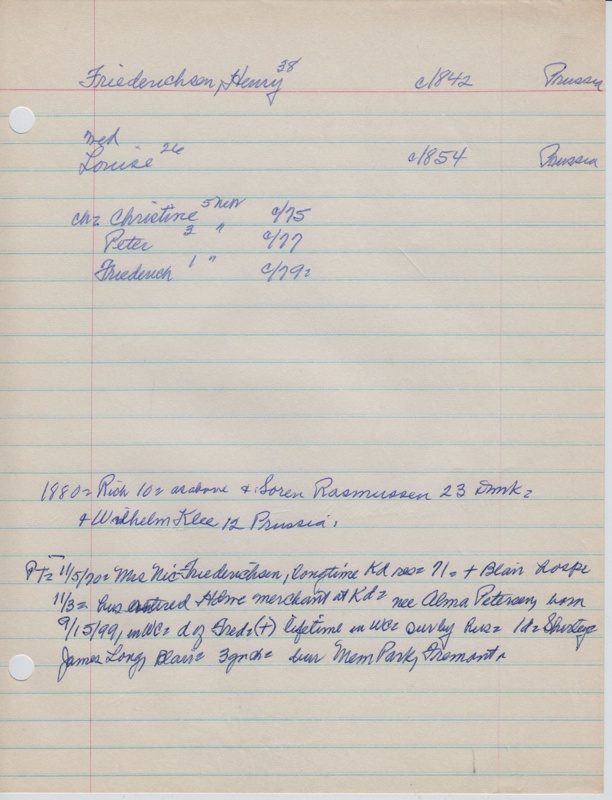 Friederichsen, Henry 38 c/1842 Prussia
med
Louise 26 c/1854 Prussia
ch= Christine 5 Nebr c/75
Peter 3 " c/77
Friederich 1 " c/79=
1880= Rich 10= as above & Soren Rasmussen 23 Dmk=
& Wilhelm Klee 12 Prussia.
PT= 11/5/70= Mrs Nic Friederichsen, longtime Kd res= 71= + Blair hosp
11/3= hus retired Home merchant at Kd= nee Alma Petersen, born
9/15/99, in WC= d of Fred= (+) lifetime in WC= sur by hus= 1d= Shirley
James Long, Blair= 3 gnch= bur Mem Park, Fremont